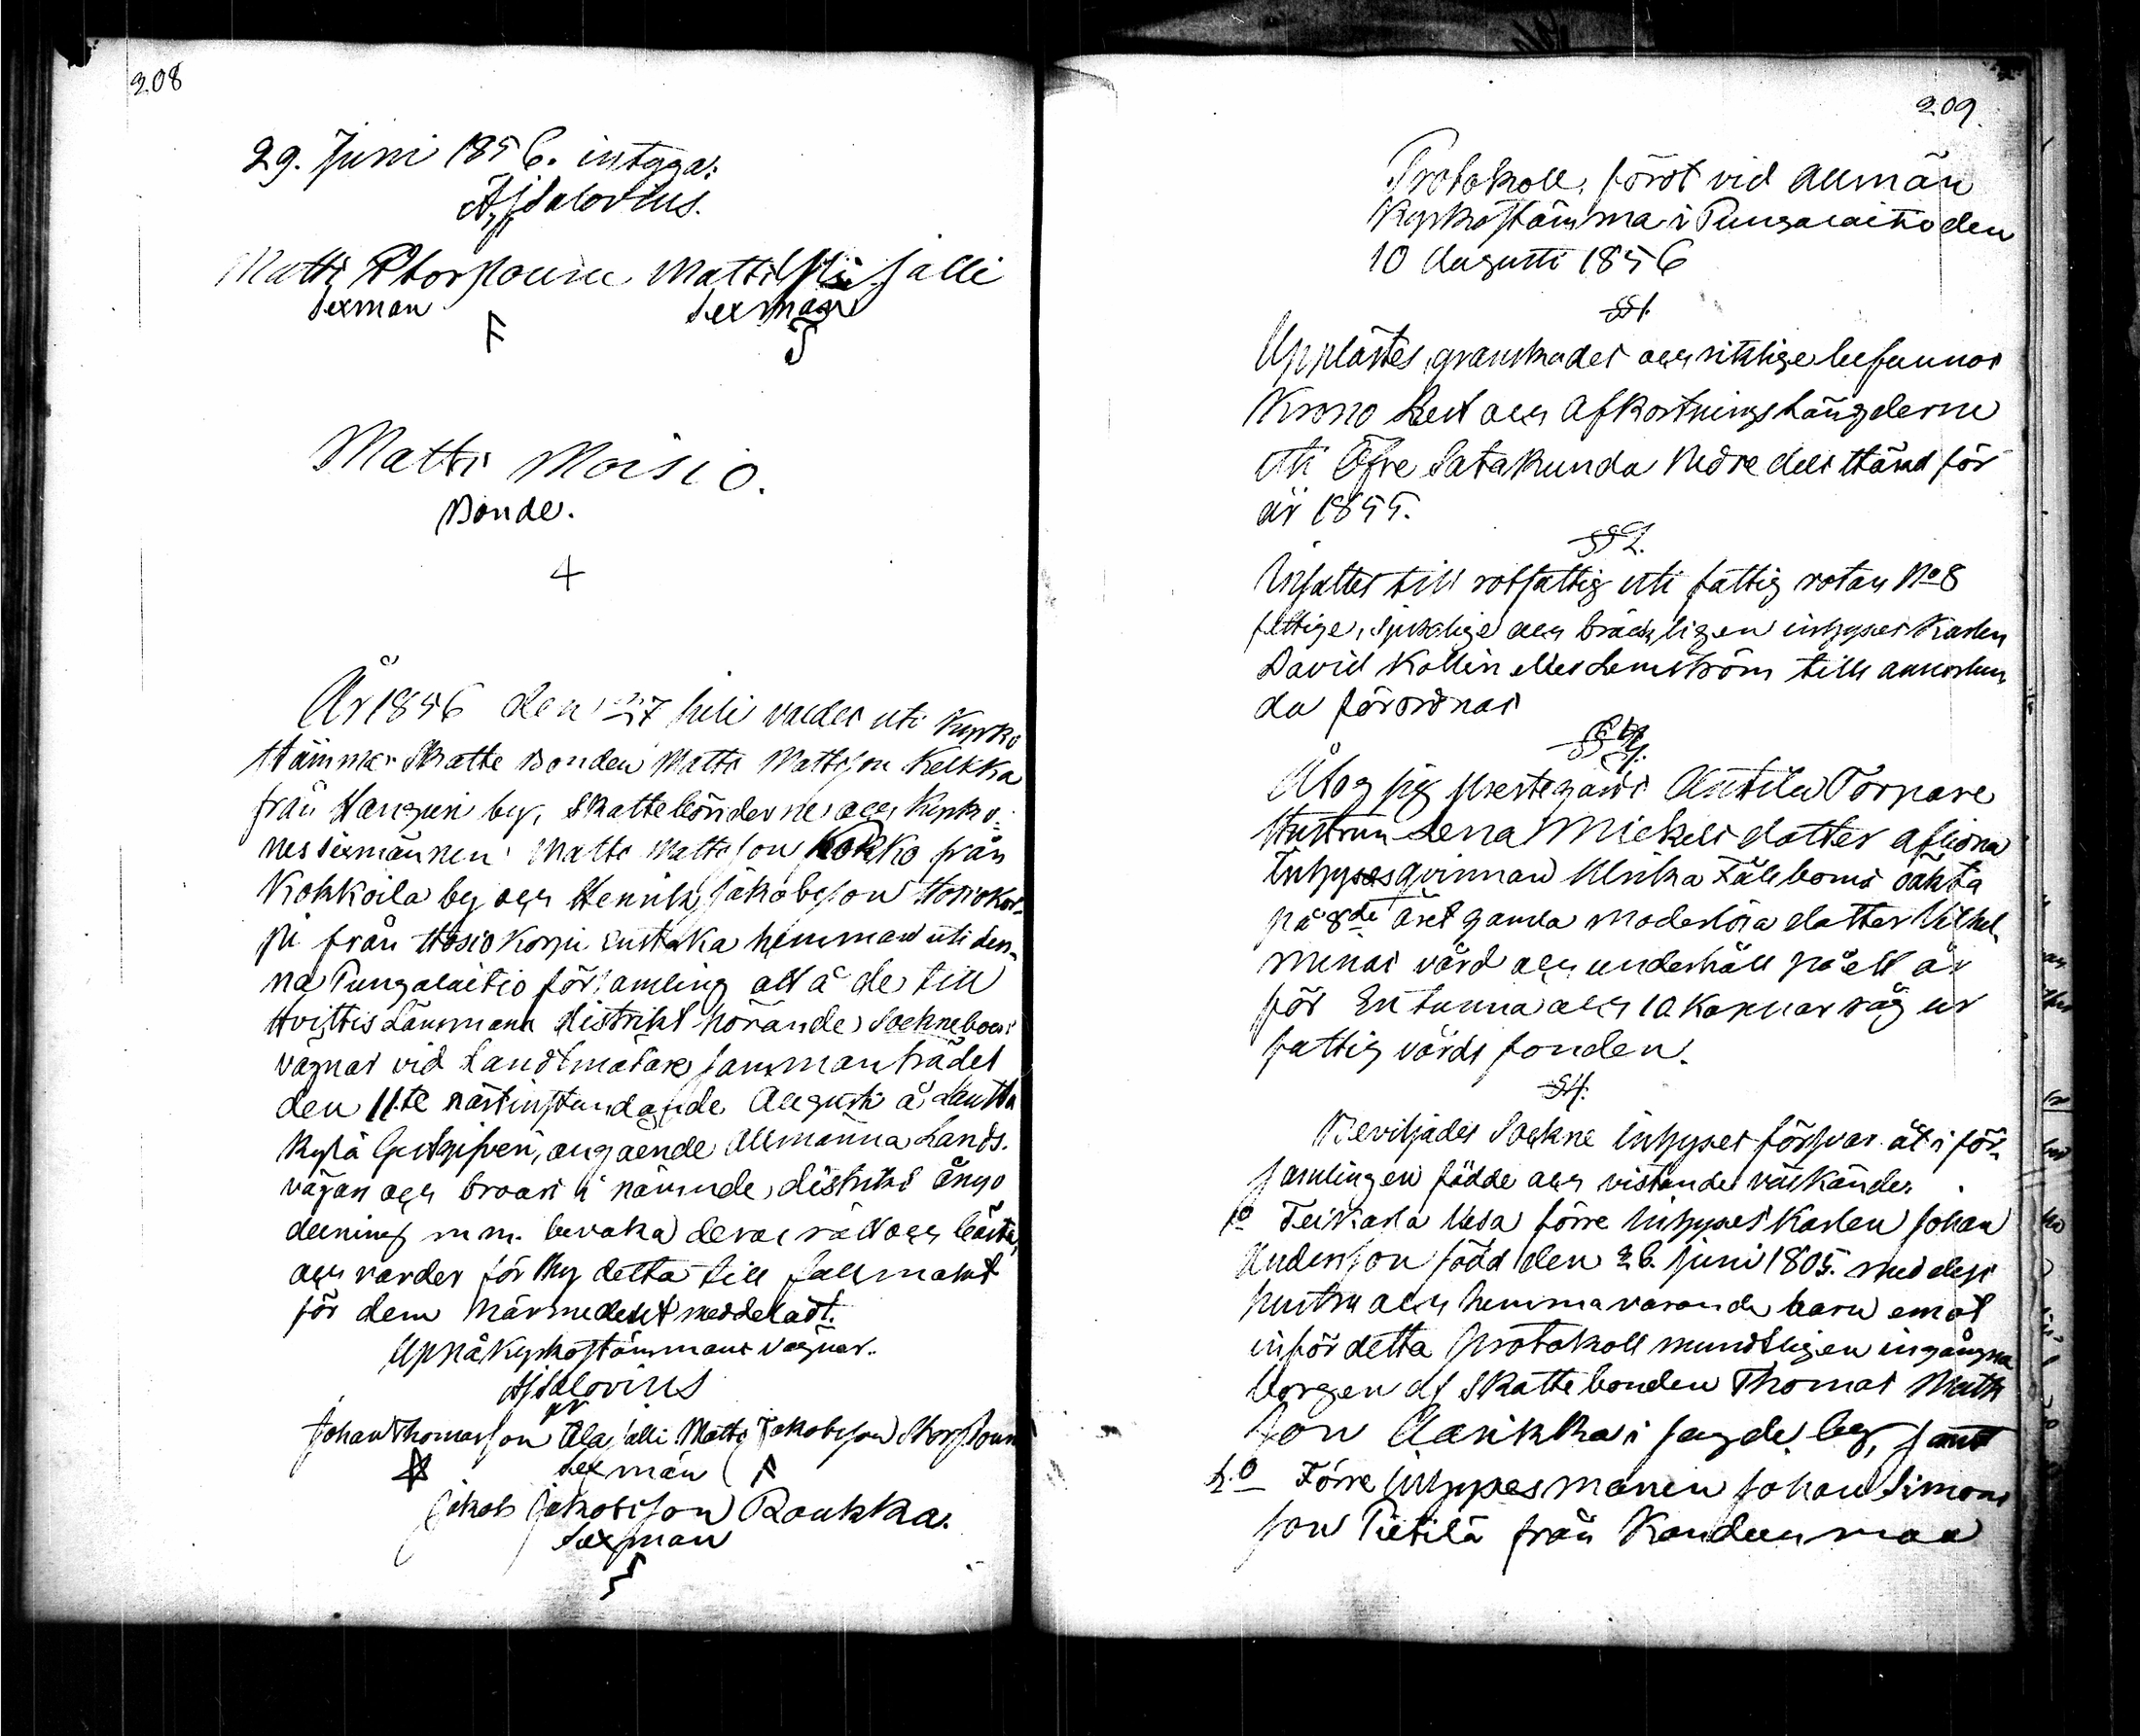 208
29. Juni 1856. intyga:
A. J. Salovius.
Matti Storsouni Matti Yli jalli
Sexman Sexman
Matti Moisio.
Bonde.
År 1856 den 27 Juli valdes uti Kyrko
stämma Skatte Bonden Matts Mattsson Kelkka
från Hanguri by, Skattebönderne och Kyrko-
nes sexmännen Matts Mattsson Kokko från
Kokkoila by och Henrik Jakobsson Hosiokor-
pi från Hosiokorpi enstaka hemman uti den-
na Pungalaitio församling att å de till
Hvittis Länsmans distrikt hörande Socknebors
vägnar vid Landtmätare sammanträdet
den 11te nästinstundande Augusti å Lautta
kylä Gästgifveri, angående Allmänna Lands-
vägars och broars i nämnde distrikt ånyo
delning m.m. bevaka deras rätt och bästa,
och varder för thy detta till fullmakt
för dem härmedelst meddeladt.
Uppå Kyrkostämmans vägnar.
A J Salovius
Johan Thomasson Ala jalli Matts Jakobsson Storsouni
Sexmän
Jakob Jakobsson Roukka.
Sexman
209.
Protokoll, fördt vid allmän
Kyrkostämma i Pungalaitio den
10 Augusti 1856
§ 1.
Upplästes, granskades och riktige befunnos
Krono Rest och Afkortningslängderne
uti Öfre Satakunda Nedre dels Härad för
år 1855.
§ 2.
Insattes till rotfattig uti fattig rotan No 8
fattige, sjuklige och bräcklige inhyses Karlen
David Kollin eller Lemström tills annorlun-
da förordnas
§ 3.
Åtog sig prestegårds Anttila Torpare
Hustrun Lena Mickelsdotter aflidna
Inhyses qvinnan Ulrika Fällboms oäkta
på 8de året gamla moderlösa dotter Vilhel-
minas vård och underhåll på ett år
för En tunna och 10 kappar råg ur
fattig vårds fonden.
§ 4.
Beviljades Sockne inhyses försvar åt i för-
samlingen födde och vistande välkände.
1o Teikarla Uusa förre Inhyses Karlen Johan
Andersson född den 26. Juni 1805. med dess
hustru och hemmavarande barn emot
inför detta protokoll muntligen ingångna
borgen af Skattebonden Thomas Matts
son Aarikka i sagde by, samt
2o Förre Inhysesmannen Johan Simons
son Pietilä från Kanden maa